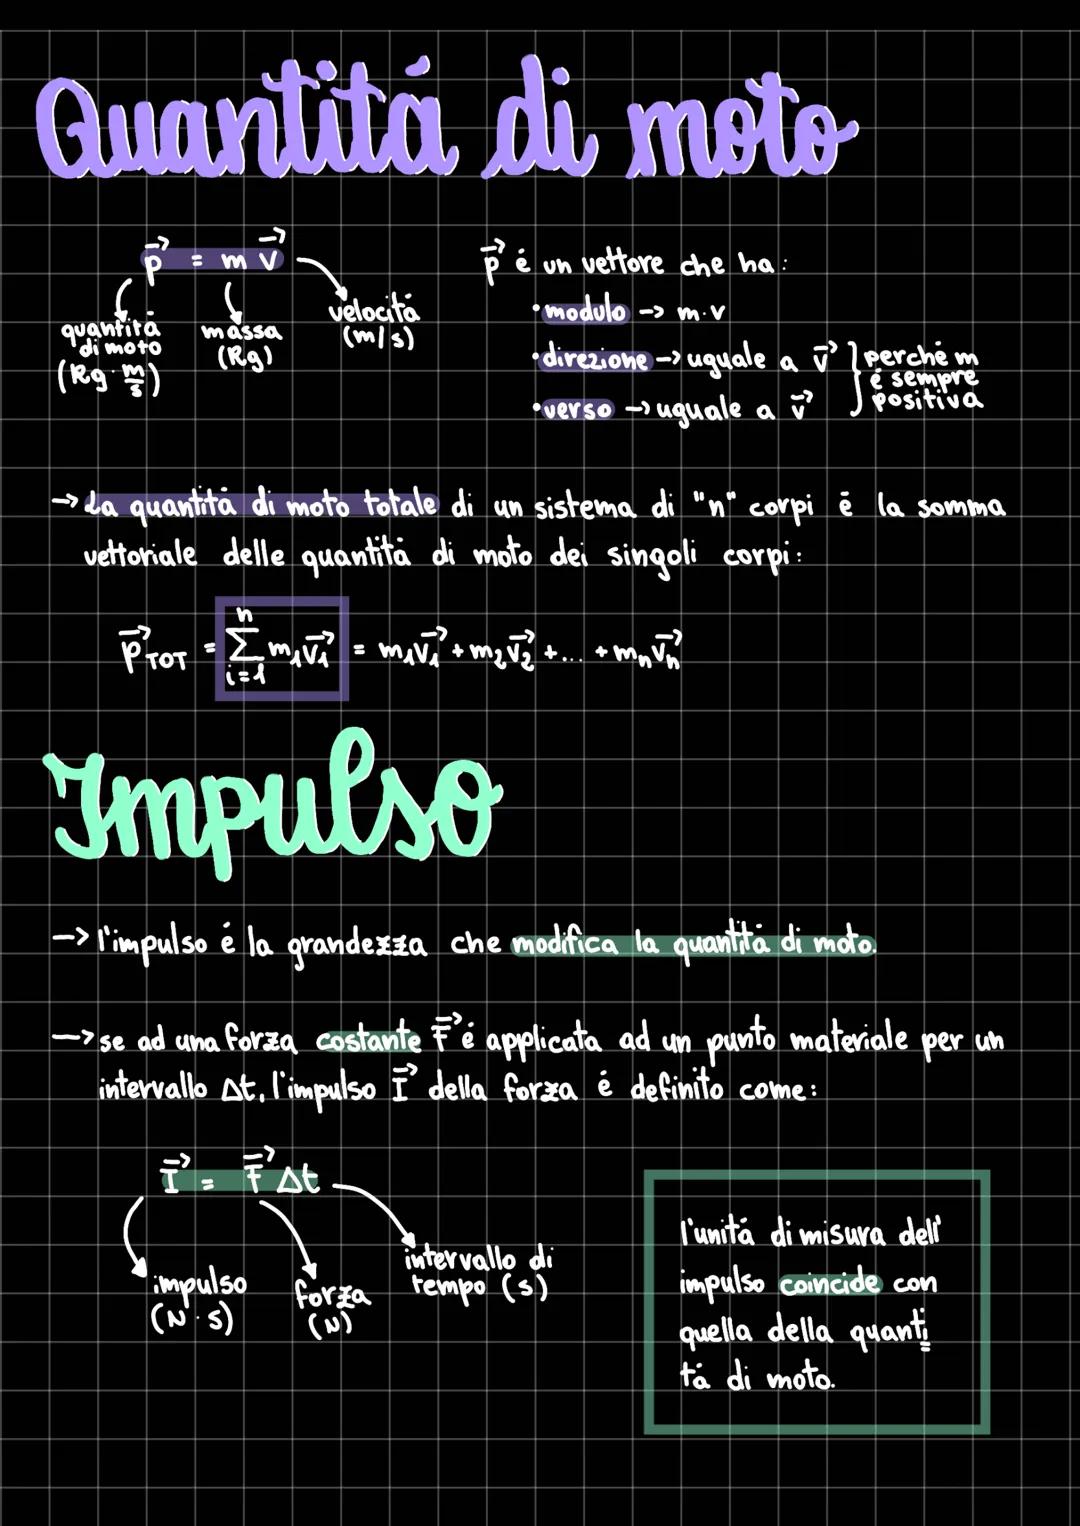 Quantitá di moto
p⃗ = m v⃗
quantitá di moto (Kg · m/s)
massa (Kg)
velocitá (m/s)
p⃗ é un vettore che ha:
• modulo -> m·v
• direzione -> uguale a v⃗
• verso -> uguale a v⃗
} perché m é sempre positiva
-> La quantitá di moto totale di un sistema di "n" corpi é la somma
vettoriale delle quantitá di moto dei singoli corpi:
p⃗TOT = ∑ⁿi=1 m₁v⃗₁ = m₁v⃗₁ + m₂v⃗₂ + ... + mₙv⃗ₙ
Impulso
-> l'impulso é la grandezza che modifica la quantitá di moto.
-> se ad una forza costante F⃗ é applicata ad un punto materiale per un
intervallo Δt, l'impulso I⃗ della forza é definito come:
I⃗ = F⃗ Δt
impulso (N · s)
forza (N)
intervallo di tempo (s)
l'unitá di misura dell'
impulso coincide con
quella della quanti
tá di moto.